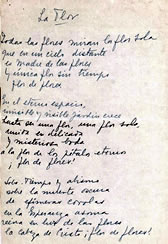 La Flor
Todas las flores miran la flor sola
que en un cielo distante
es madre de las flores
y nunca flor sin tiempo
flor de flores.
En el eterno espacio,
invisible y visible jardín crece
hasta ser una flor, una flor sola,
unida es delicada
y misteriosa boda
a la de los pétalos eternos
¡flor de flores!
Solo tiempo y abismo
sobre la muerte oscura
de efímeras corolas
en la esperanza
en luz de las flores
la cabeza de Cristo, ¡flor de flores!